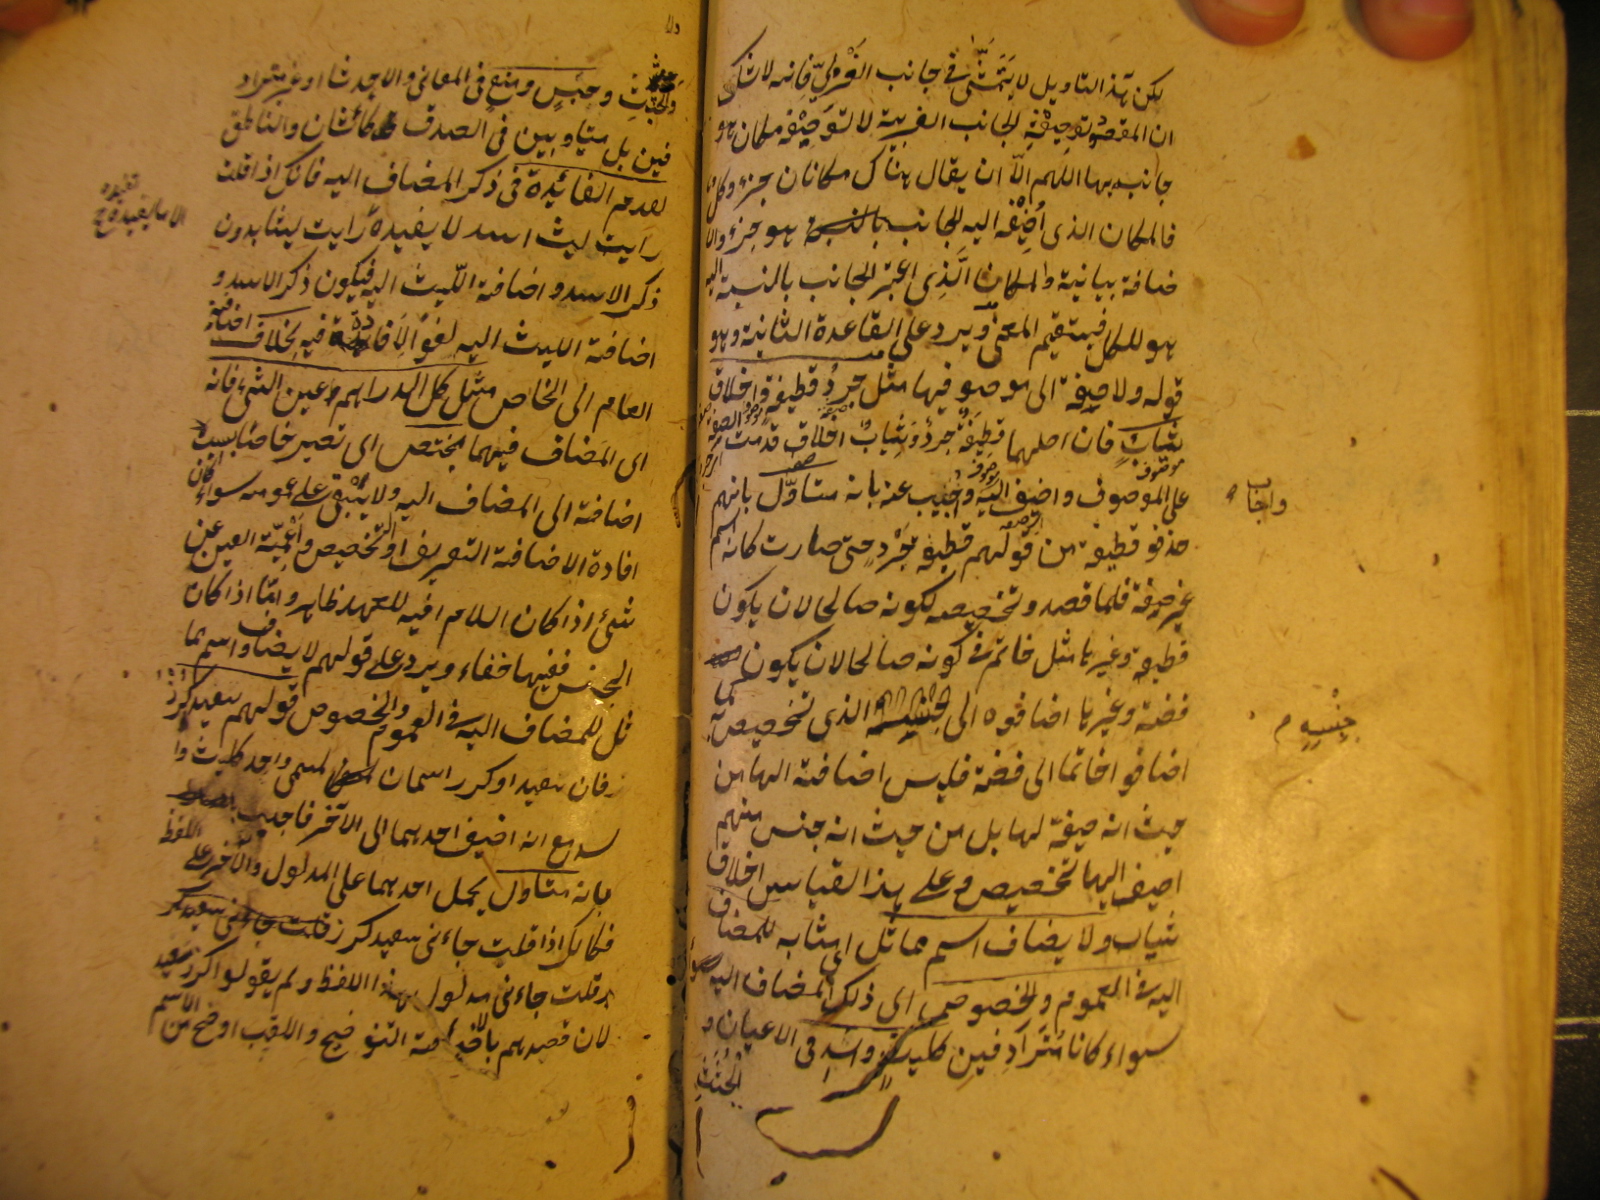 لكن هذا التاويل لا يَتَمَشّٰى فى جانب الغَرْبِىّ فانه لا شك
ان المقصود توصِيْفه لجانب الغربية لا توصِيْفه مكان هو
جانبه بها اللهم الّا ان يقال هناك مكانان جزء وكل
فالمكان الذى اُضِيْفه اليه الجانب هو جزء والا
ضافة بيانية والمكان الَّذِى اعتبر الجانب بالنسبة اليه
هو للكل فيستقيم المعنى ويرد على القاعدة الثانية وهو
قوله ولا صفة الى موصوفها مثل جردُ قطيفة واخلاق
ثياب فان اصلهما قطيفةٌ جردٌ وثيابٌ اخلاق قدمت الصفة
على الموصوف واضيف اليه واجيب عنه بانه متاوّل بانهم
حذفوا قطيفة من قولهم قطيفة جَرْد حتى صارت كانه اسم
غير صفة فلما قصدو تخصيصه لكونه صالحا لان يكون
قطيفة وغيرها مثل خاتم فى كونه صالحا لان يكون
فضة وغيرها اضافوه الى الذى تخصص به كما
اضافوا خاتما الى فضة فليس اضافته اليها من
حيث انه صفة لها بل من حيث انه جنس مبهم
اضيف اليها لتخصيص وعلى هذا القياس اخلاق
ثياب ولا يضاف اسم مماثل اى مشابه للمضاف
اليه فى العموم والخصوص اى ذلك المضاف اليه
سواء كانا مُتَرادِفين كليث واسد فى الاعيان و
الجُثَث
واجاب
جنسه م
والجُثَثِ وحَبْسٍ ومنعٍ فى المعانى والاحداث او غير مترادفين
فين بل متساويين فى الصدق كالانسان والناطق
لعدم الفائدة فى ذكر المضاف اليه فانك اذا قلت
رايت ليث اسد لا يفيده رايت ليثا بدون
ذكر الاسد و اضافة الليث اليه فيكون ذكر الاسد و
اضافة الليث اليه لغوًا لا فائدة فيه بخلاف اضافة
العام الى الخاص مثل كل الدراهم وعين الشئ فانه
اى المضاف فيهما يختص اى تصير خاصا بسبب
اضافته الى المضاف اليه ولا يبْقى على عمومه سواء كان
افادة الاضافة التعريف او التخصيص واَعَمِّيّة العين عن
شئ اذا كان اللام فيه للعهد ظاهر وامّا اذا كان
الجنس ففيها خفاء ويرد على قولهم لا يضاف اسم مما
ثل للمضاف اليه فى العموم والخصوص قولهم سعيد كرز
فان سعيدا وكرز اسمان لمسمى واحد كليث وا
سد مع انه اضيف احدهما الى الآخر فاجيب
بانه متاول يحمل احدهما على المدلول والآخر على اللفظ
فكانك اذا قلت جاءنى سعيد كرز
قلت جاءنى مدلول هذا اللفظ ولم يقولوا كرز سعيد
لان قصدهم بالاضافة التوضيح واللقب اوضح من الاسم